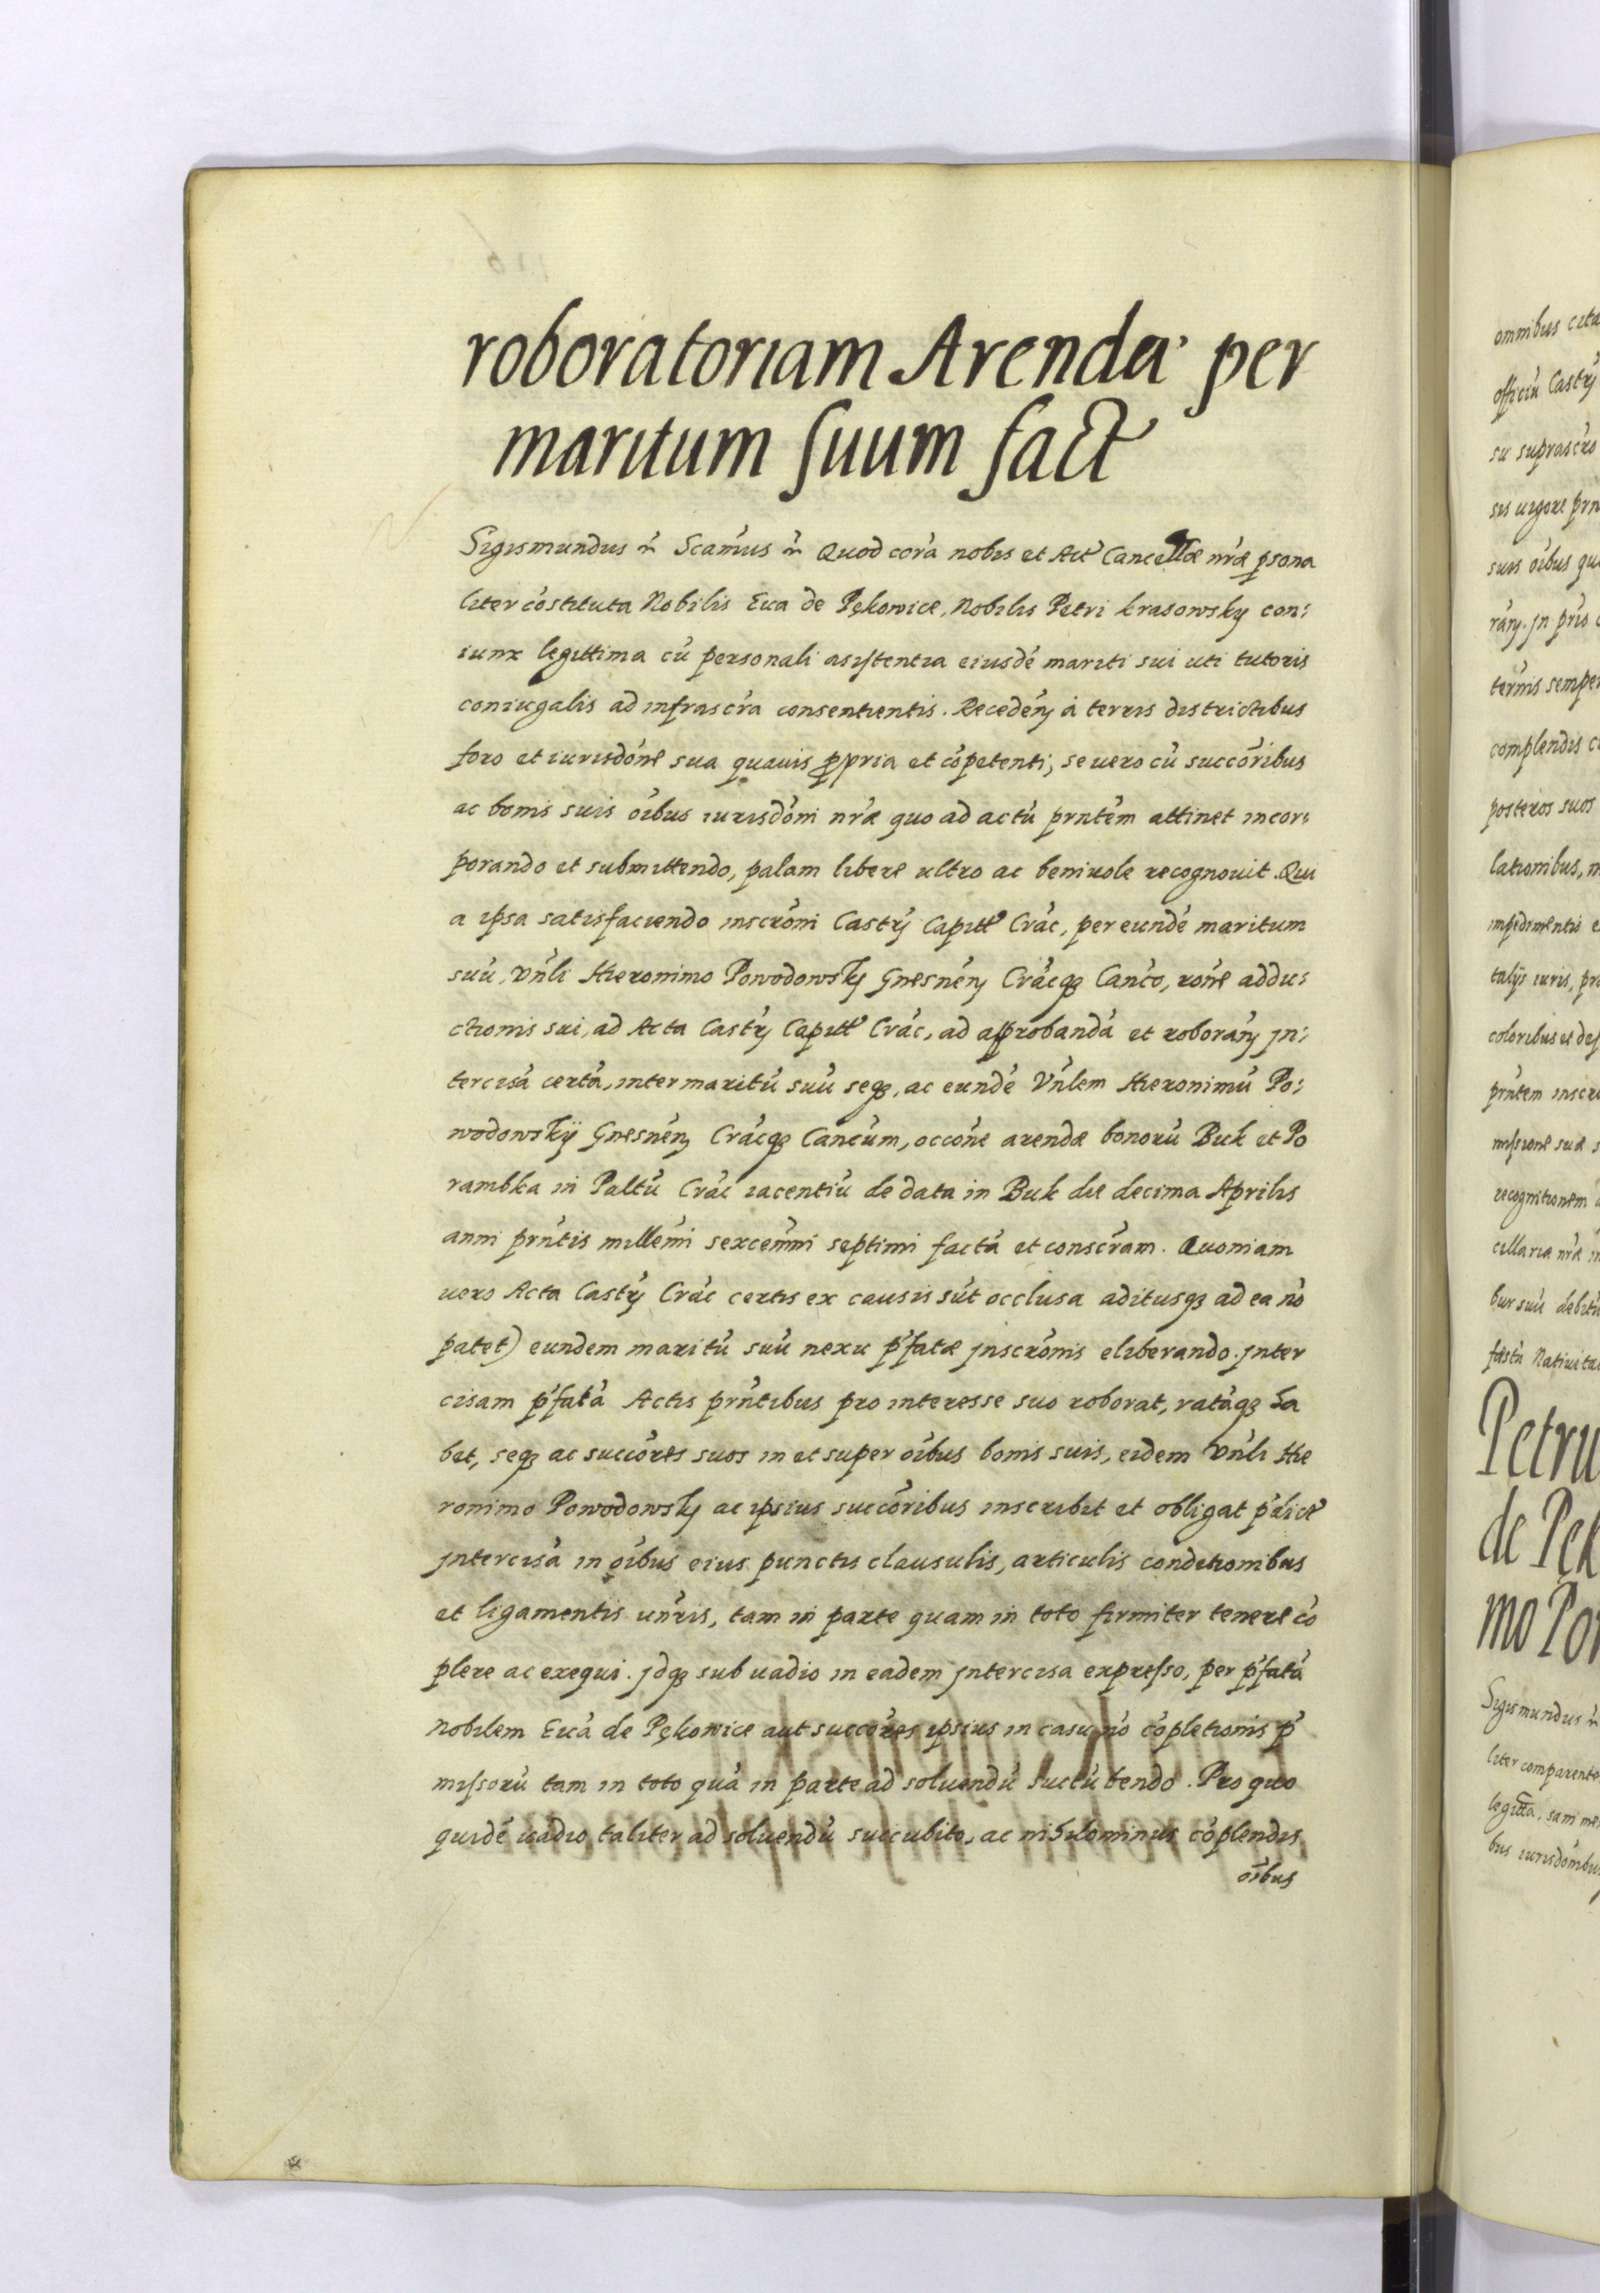 roboratoriam Arenda' per
maritum suum fact
Sigismundus r̃ Scam̃us r̃ Quod corã nobis et Act Cancellæ nr̃æ psona
liter cõstituta Nobilis Eua de Pękowice, Nobilis Petri Krasowsky con:
iunx legittima cũ personali asistentia eiusdẽ mariti sui uti tutoris
coniugalis ad infrascr̃a consentientis. Recedeñ à terris districtibus
foro et iurisdõne sua quauis ppria et cõpetenti, se uero cũ succõribus
ac bonis suis oĩbus iurisdõni nr̃æ quo ad actũ prñtem attinet incor:
porando et submittendo, palam libere ultro ac beniuole recognouit. Qui
a ipsa satisfaciendo inscrõni Castrỹ Capitt Crac̃, per eundẽ maritum
suũ, Vñli Hieronimo Powodowsky Gnesneñ Crac̃q Canc̃o, rõne addu:
ctionis sui, ad Acta Castrỹ Capitt Crac̃, ad approbandã et roborañ jn:
tercisã certã, inter maritũ suũ seq, ac eundẽ Vñlem Hieronimũ Po:
wodowskÿ Gnesneñ Crac̃q Canc̃um, occõne arendæ bonorũ Buk et Po
rambka in Paltũ Crac̃ iacentiũ de data in Buk die decima Aprilis
anni prñtis millẽmi sexceñmi septimi factã et conscr̃am. Quoniam
uero Acta Castrỹ Crac̃ certis ex causis sũt occlusa aditusq ad ea nõ
patet) eundem maritũ suũ nexu p̃fatæ jnscrõnis eliberando. jnter
cisam p̃fatã Actis prñtibus pro interesse suo roborat, ratãq ha
bet, seq ac succõres suos in et super oĩbus bonis suis, eidem Vñli Hie
ronimo Powodowsky ac ipsius succõribus inscribit et obligat p̃dict
jntercisã in oĩbus eius punctis clausulis, articulis conditionibus
et ligamentis uñris, tam in parte quam in toto firmiter tenere cõ
plere ac exequi. jdq sub uadio in eadem jntercisa expresso, per p̃fatã
Nobilem Euã de Pękowice aut succõres ipsius in casu nõ cõpletionis p̃
missorũ tam in toto quã in parte ad soluendũ succũbendo. Pro quo
quidẽ uadio taliter ad soluendũ succubito, ac nihilominus cõplendis
oĩbus
omnibus
officiũ Castrỹ
su suprascr̃o
sis uigore
suis oĩbus
jn
semper
complendis
posteros suos
lationibus,
impedimentis
talÿs iuris,
coloribus
prñtem
missione suæ
recognitionem
cellaria nr̃æ
bur suũ
festa
Petru
de Pęk
mo Po
Sigismundus r̃
liter
legitta,
bus